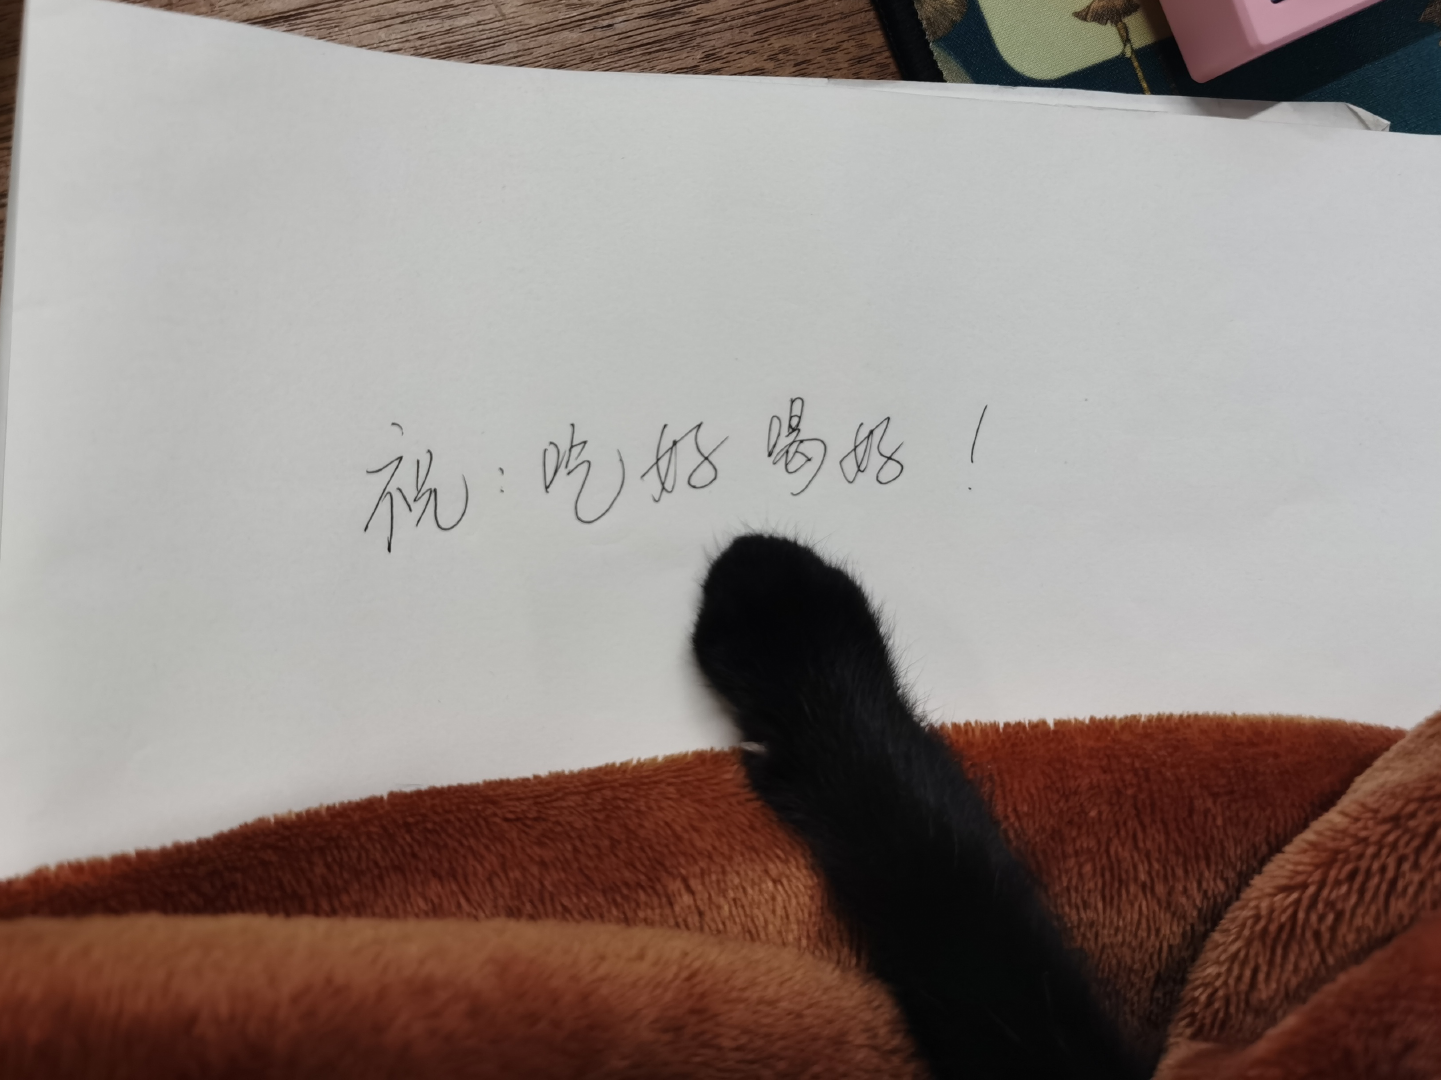 祝：吃好喝好！